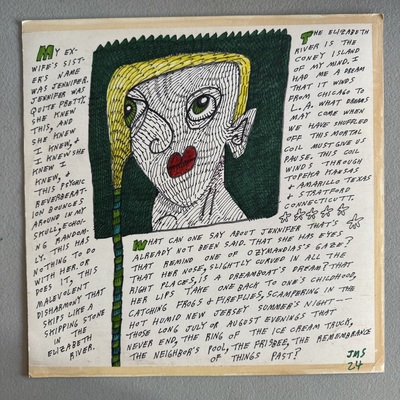 MY EX-
WIFE'S SIST-
ER'S NAME
WAS JENNIFER.
JENNIFER WAS
QUITE PRETTY.
SHE KNEW
THIS, AND
SHE KNEW
I KNEW, &
I KNEW SHE
KNEW I
KNEW, &
THIS PSYCHIC
REVERBERAT-
ION BOUNCES
AROUND IN MY
SKULL, ECHOI-
NG RANDOM-
LY. THIS HAS
NOTHING TO DO
WITH HER. OR
DOES IT, THIS
MALEVOLENT
DISHARMONY THAT
SKIPS LIKE A
SKIPPING STONE
IN THE
ELIZABETH
RIVER.
THE ELIZABETH
RIVER IS THE
CONEY ISLAND
OF MY MIND. I
HAD ME A DREAM
THAT IT WINDS
FROM CHICAGO TO
L.A. WHAT DREAMS
MAY COME WHEN
WE HAVE SHUFFLED
OFF THIS MORTAL
COIL MUST GIVE US
PAUSE. THIS COIL
WINDS THROUGH
TOPEKA KANSAS
& AMARILLO TEXAS
& STRATFORD
CONNECTICUTT.
WHAT CAN ONE SAY ABOUT JENNIFER THAT'S
ALREADY NOT BEEN SAID. THAT SHE HAS EYES
THAT REMIND ONE OF OZYMANDIAS'S GAZE?
THAT HER NOSE, SLIGHTLY CURVED IN ALL THE
RIGHT PLACES, IS A DREAMBOAT'S DREAM? THAT
HER LIPS TAKE ONE BACK TO ONE'S CHILDHOOD,
CATCHING FROGS & FIREFLIES, SCAMPERING IN THE
HOT HUMID NEW JERSEY SUMMER'S NIGHT--
THOSE LONG JULY OR AUGUST EVENINGS THAT
NEVER END, THE RING OF THE ICE CREAM TRUCK,
THE NEIGHBOR'S POOL, THE FRISBEE, THE REMEMBRANCE
OF THINGS PAST?
JMS
24